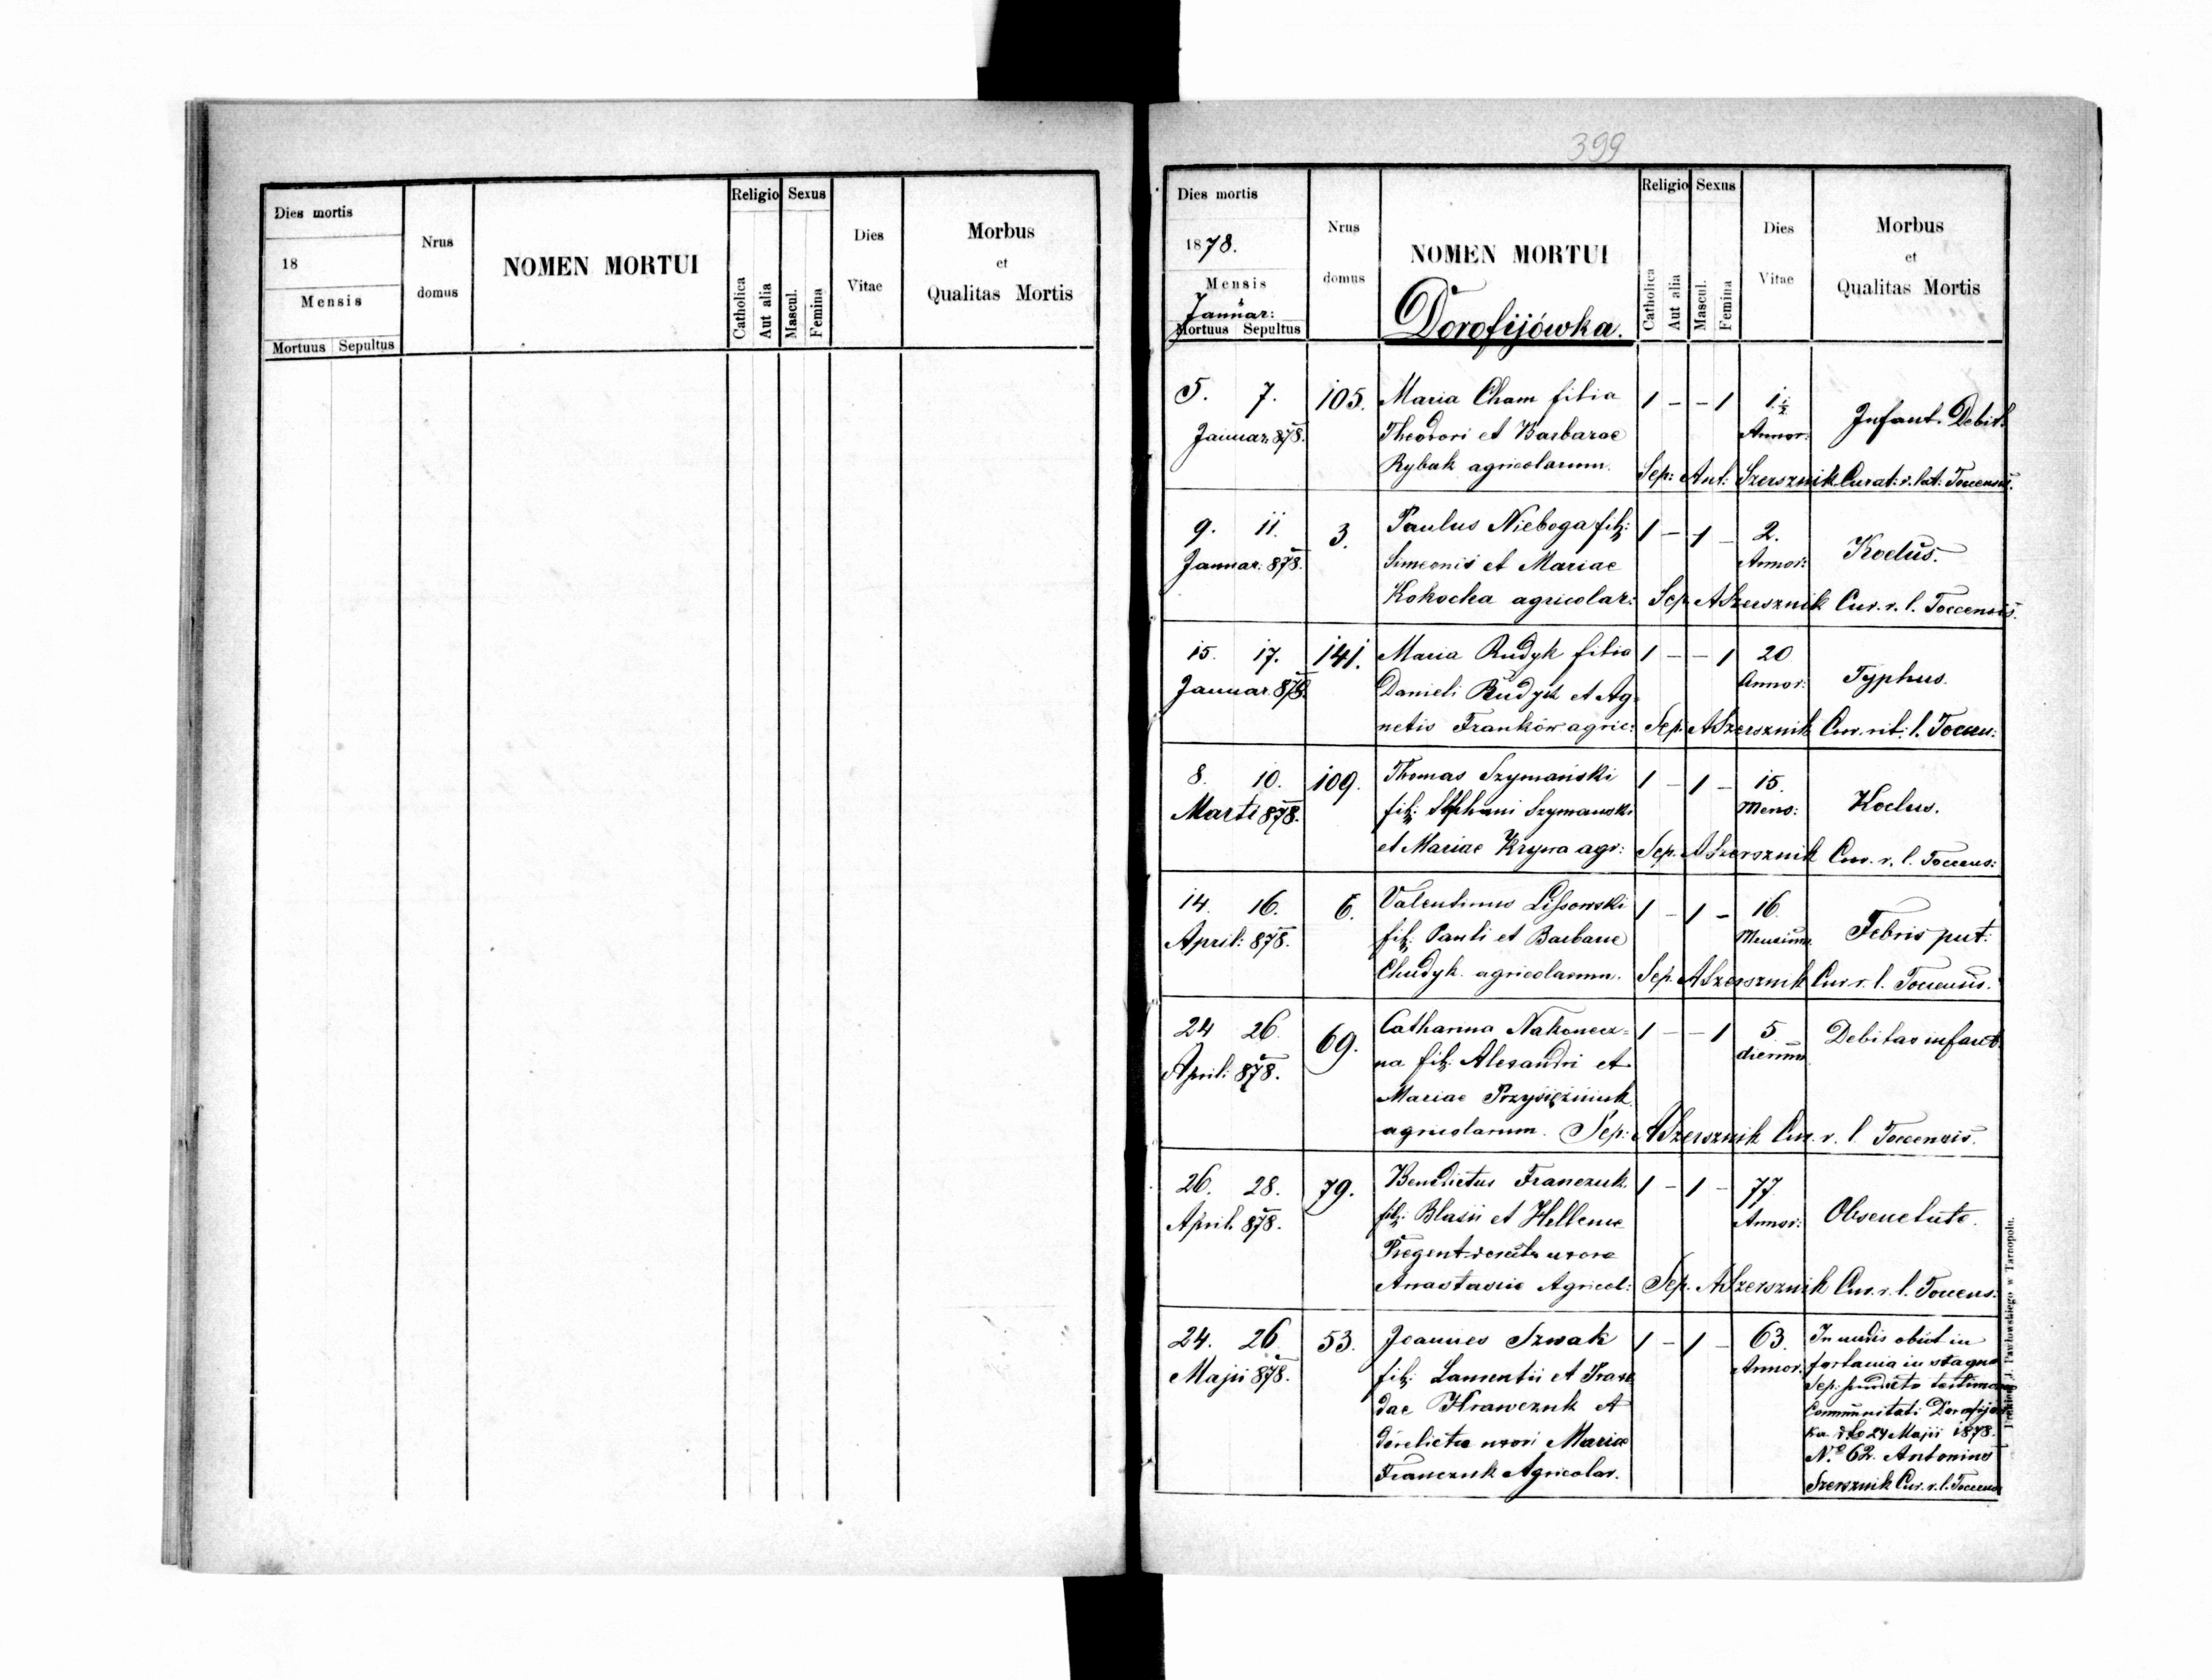 Dies mortis
18
Mensis
Mortuus Sepultus
Nrus
domus
NOMEN MORTUI
Religio
Catholica
Aut alia
Sexus
Mascul.
Femina
Dies
Vitae
Morbus
et
Qualitas Mortis
399
Dies mortis
1878.
Mensis
Januar:
Mortuus Sepultus
Nrus
domus
NOMEN MORTUI
Dorofijówka.
Religio
Catholica
Aut alia
Sexus
Mascul.
Femina
Dies
Vitae
Morbus
et
Qualitas Mortis
5. 7. 105. Maria Cham filia 1 - - 1 1½ Infant. Debit.
Januar: 878. Theodori et Barbarae Annor:
Rybak agricolarum. Sep: Ant: Szersznik Curat: r. lat: Toccensis.
9. 11. 3. Paulus Nieboga fil: 1 - 1 - 2. Koclus.
Januar. 878. Simeonis et Mariae Annor:
Kokocha agricolar: Sep. ASzersznik Cur. r. l. Toccensis.
15. 17. 141. Maria Rudyk filia 1 - - 1 20 Typhus.
Januar. 878. Danieli Rudyk et Ag- Annor:
netis Franków agric: Sep. ASzersznik Cur. rit: l. Toccen:
8. 10. 109. Thomas Szymański 1 - 1 - 15. Koclus.
Marti 878. fil: Stephani Szymanski Mens:
et Mariae Krywa agr: Sep. ASzersznik Cur. r. l. Toccens:
14. 16. 6. Valentinus Lissowski 1 - 1 - 16. Febris put.
April: 878. fil: Pauli et Barbarae Mensium
Chudyk agricolarum. Sep. ASzersznik Cur r. l. Toccensis.
24 26. 69. Catharina Nakonecz- 1 - - 1 5. Debitas infant.
April: 878. na fil: Alexandri et dierum
Mariae Przysiężniuk
agricolarum. Sep: ASzersznik Cur. r. l. Toccensis.
26. 28. 79. Benedictus Franczuk 1 - 1 - 77 Obsenectute.
April. 878. fil: Blasii et Hellenae Annor:
uxore
Anastasiae Agricol: Sep. ASzersznik Cur. r. l. Toccens:
24. 26 53. Joannes Szwak 1 - 1 - 63. In undis obiit in
Majii 878. fil: Laurentii et Annor. in stagno
dae Krawczuk et Sep:
derelicta uxori Mariae Communitati Dorofijów
Franczuk Agricolar. ka dto 24 Majii 1878.
No 62. Antonius
Szersznik Cur. r. l. Toccens
J. Pawłowskiego w Tarnopolu.